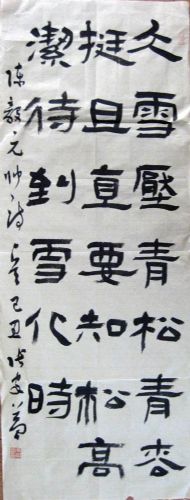 大雪壓青松青枩
挺且直要知松高
潔待到雪化時
陳毅元帥詩 己丑